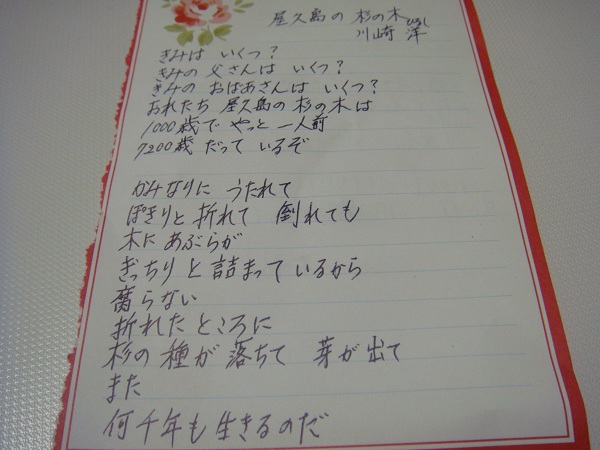 屋久島の 杉の木
川崎 洋
ひろし
きみは いくつ?
きみの 父さんは いくつ?
きみの おばあさんは いくつ?
おれたち 屋久島の 杉の木は
1000歳で やっと 一人前
7200歳 だって いるぞ
かみなりに うたれて
ぽきりと 折れて 倒れても
木に あぶらが
ぎっちりと 詰まって いるから
腐らない
折れた ところに
杉の 種が 落ちて 芽が 出て
また
何千年も 生きるのだ